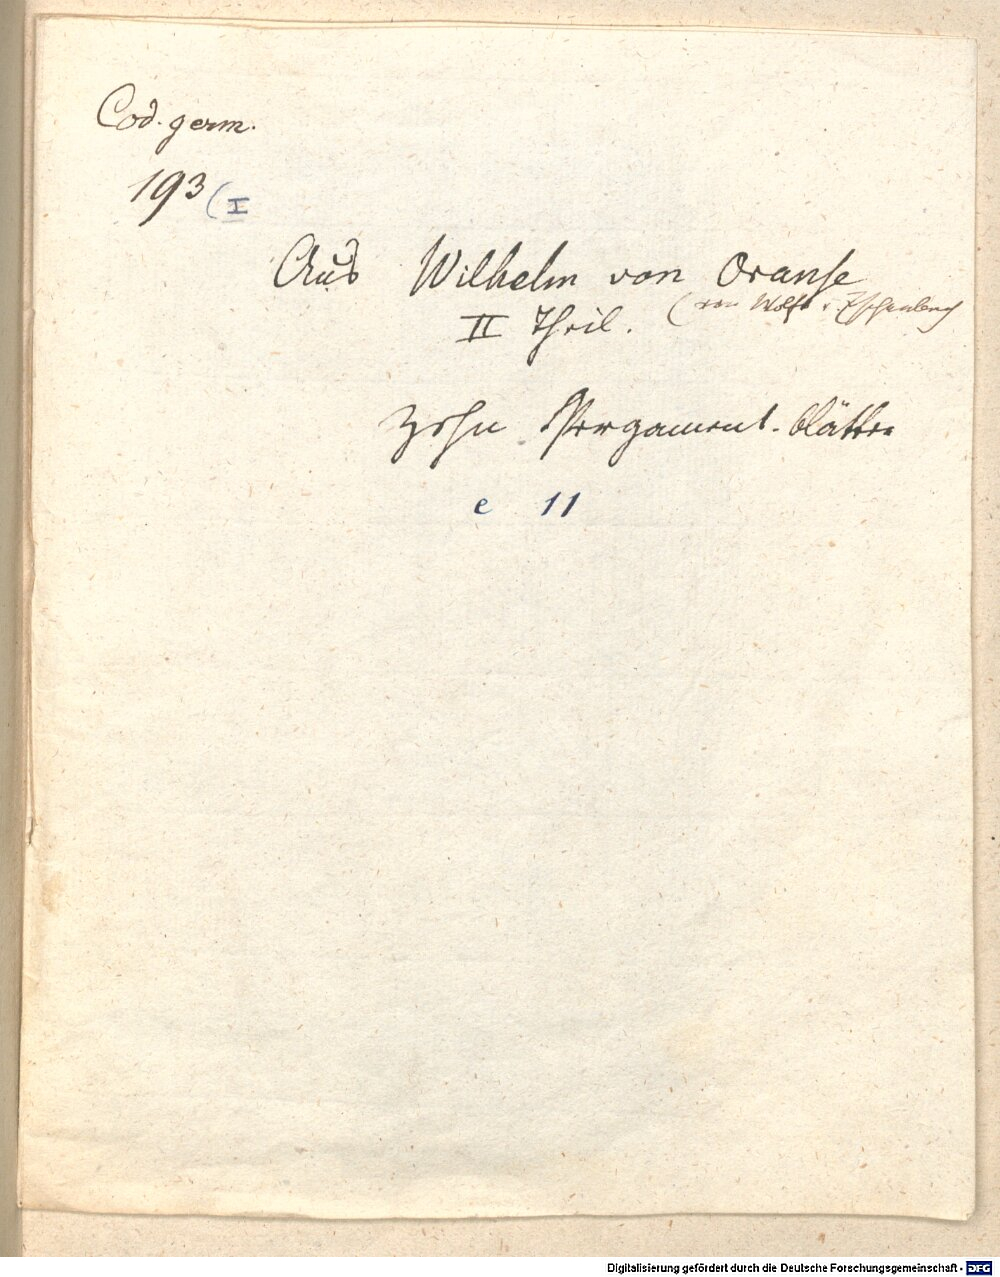 Cod. germ.
193 (I
Aus Wilhelm von Oranse
(von Wolfr v. Eschenbach
II Theil.
Zehn Pergament-blätter
e 11
Digitalisierung gefördert durch die Deutsche Forschungsgemeinschaft - DFG